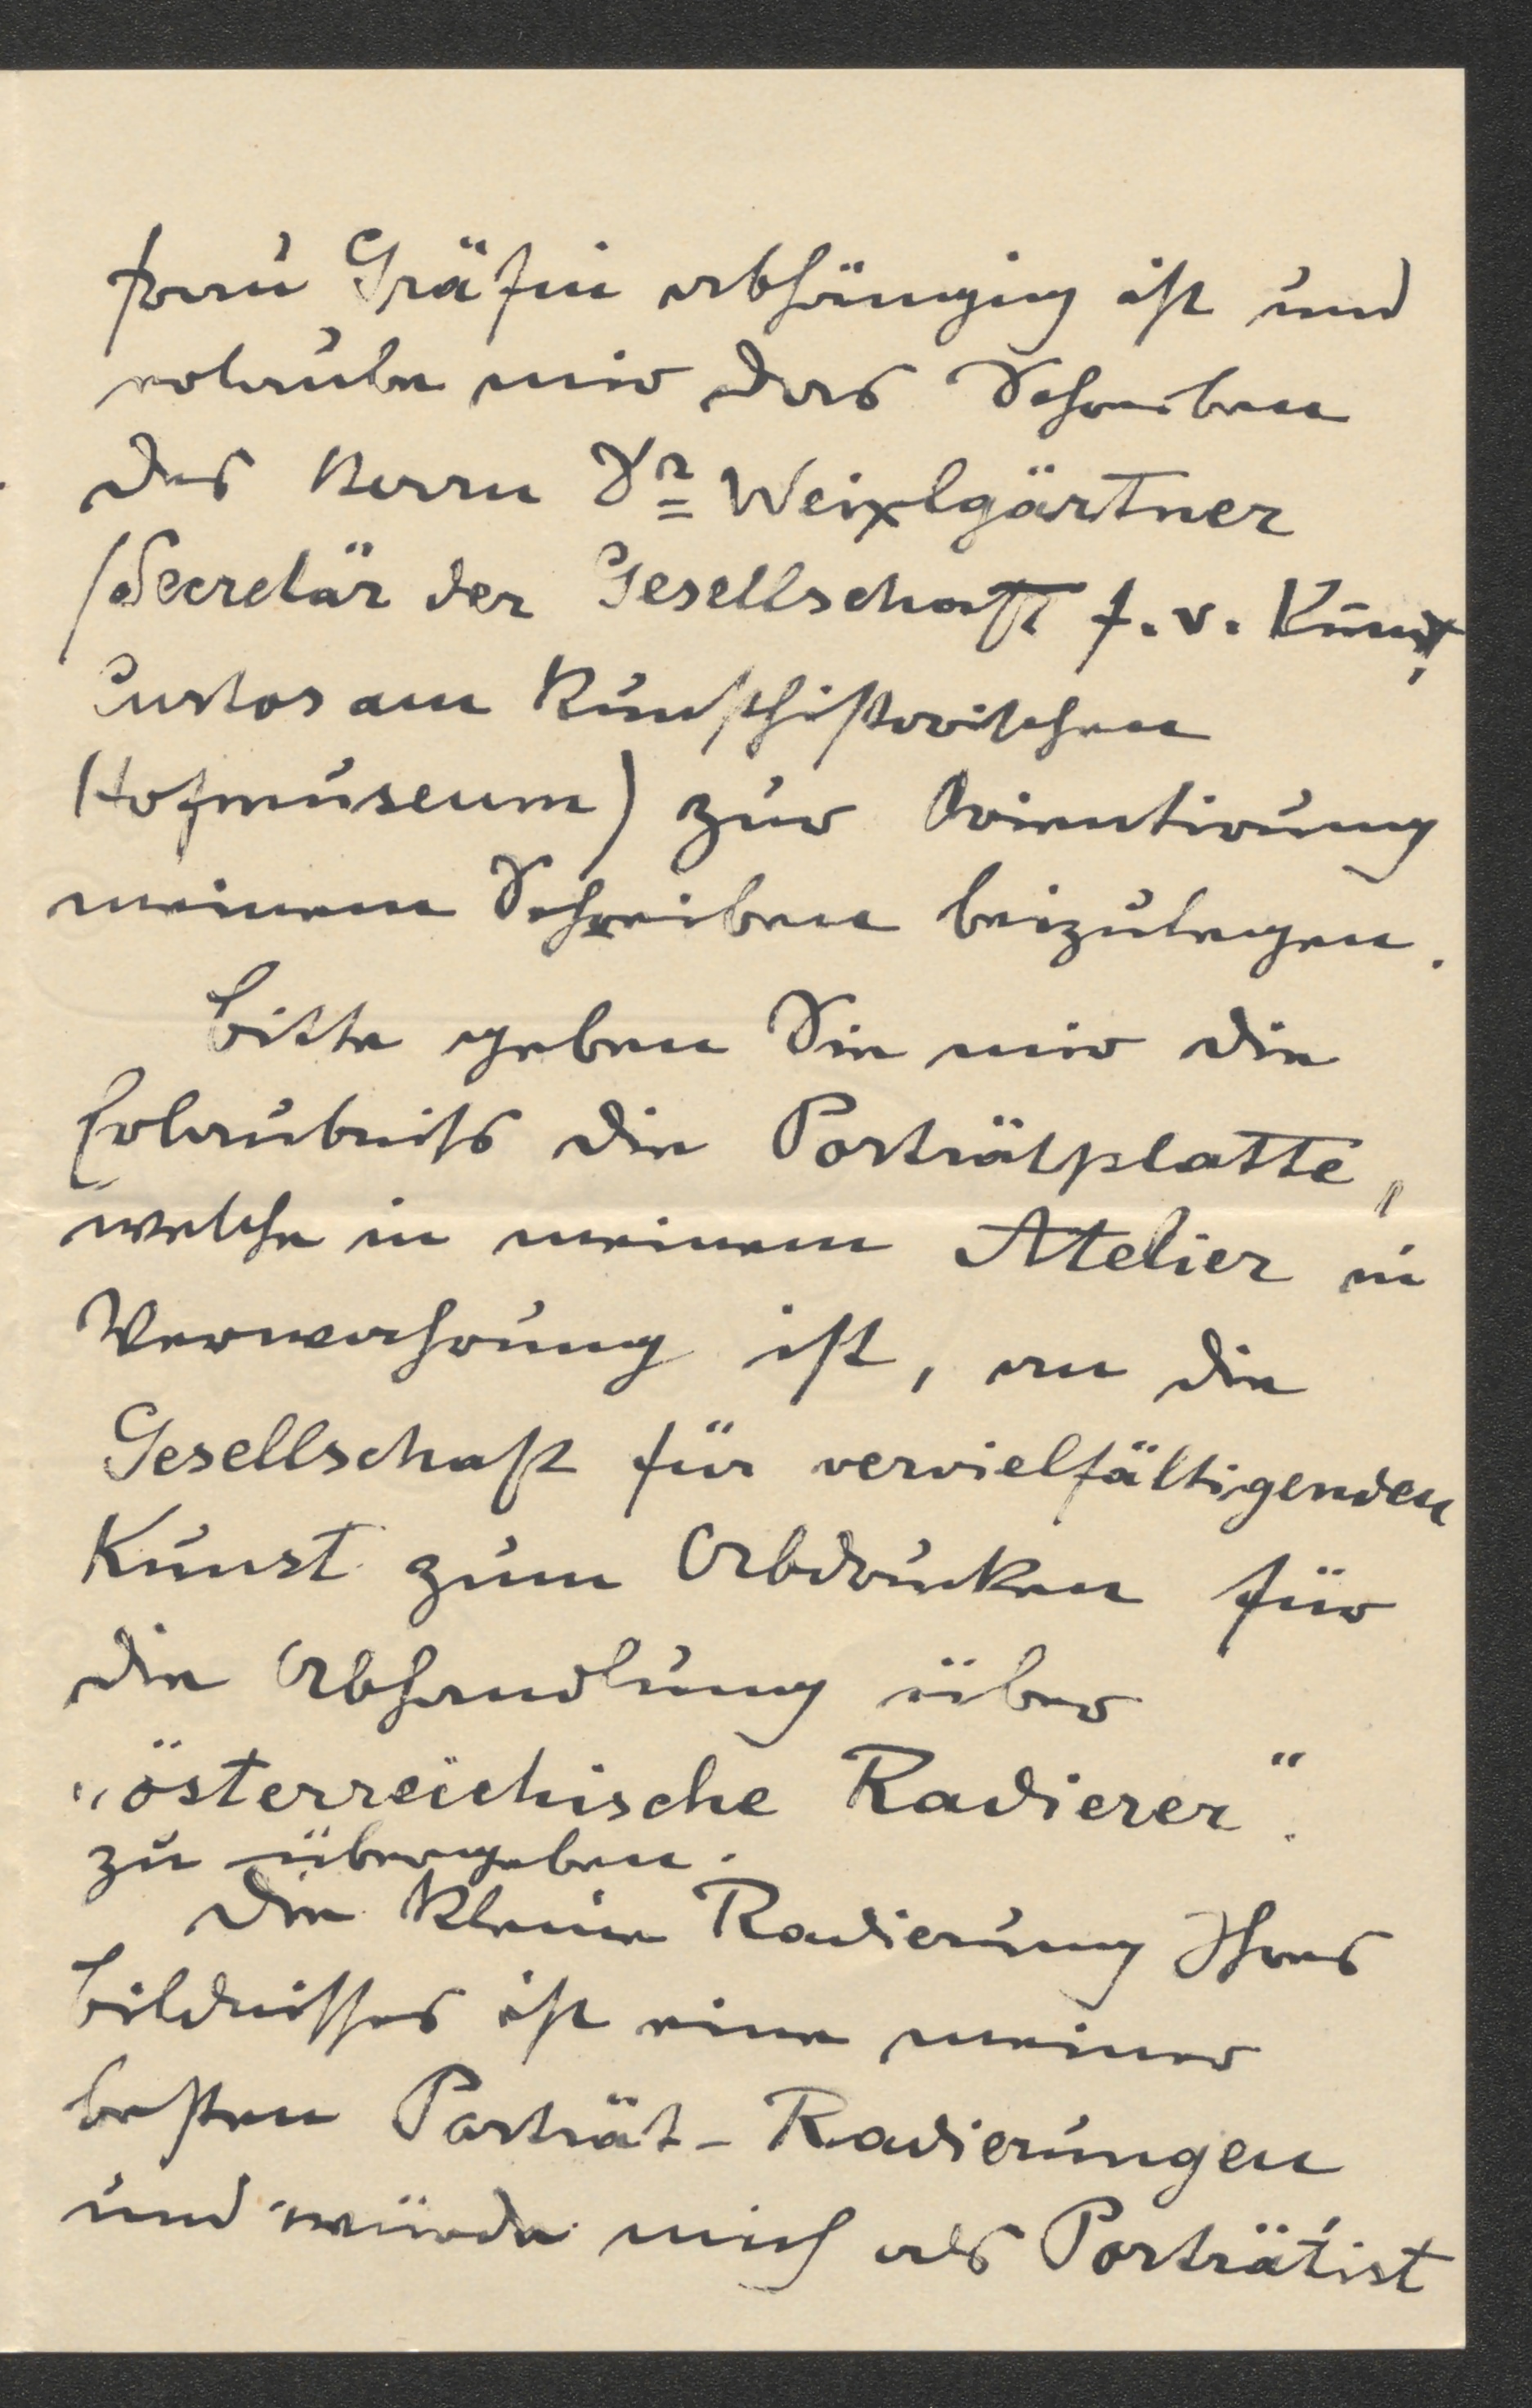 Frau Gräfin abhängig ist und
erlaube mir das Schreiben
des Herrn Dr Weixlgärtner
(Secretär der Gesellschaft f. v. Kunst,
Custos am Kunsthistorischen
Hofmuseum) zur Orientirung
meinem Schreiben beizulegen.
Bitte geben Sie mir die
Erlaubniss die Porträtplatte,
welche in meinem Atelier in
Verwahrung ist, an die
Gesellschaft für vervielfältigenden
Kunst zum Abdrucken für
die Abhandlung über
„österreichische Radierer“.
zu übergeben.
Die kleine Radierung Ihres
Bildnisses ist eine meiner
besten Porträt-Radierungen
und würde mich als Porträtist